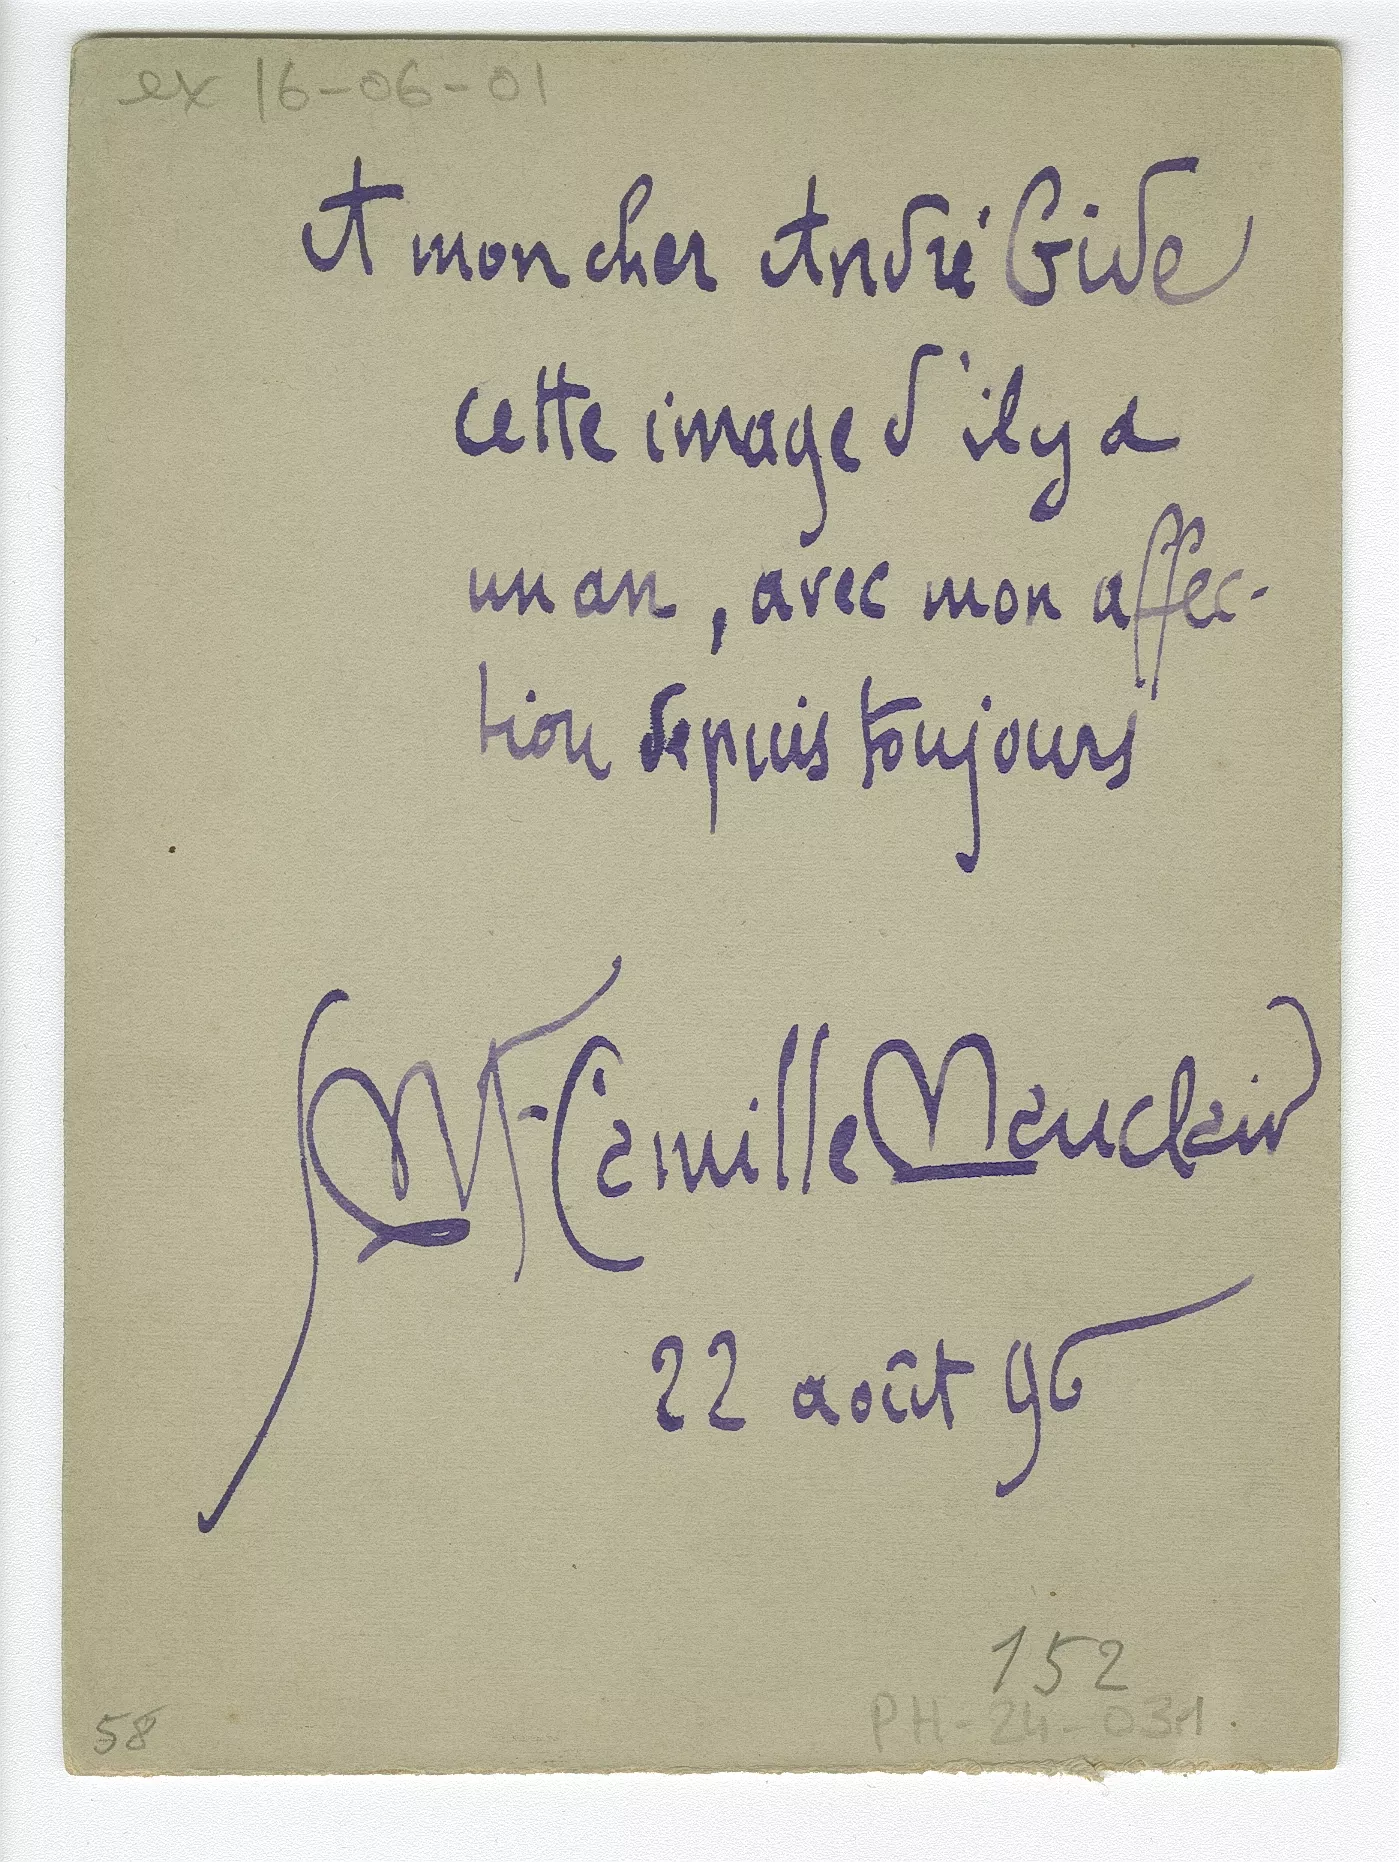 ex 16-06-01
A mon cher André Gide
cette image d'il y a
un an, avec mon affec-
tion depuis toujours
Camille Mauclair
22 août 96
152
PH-24-031.
58